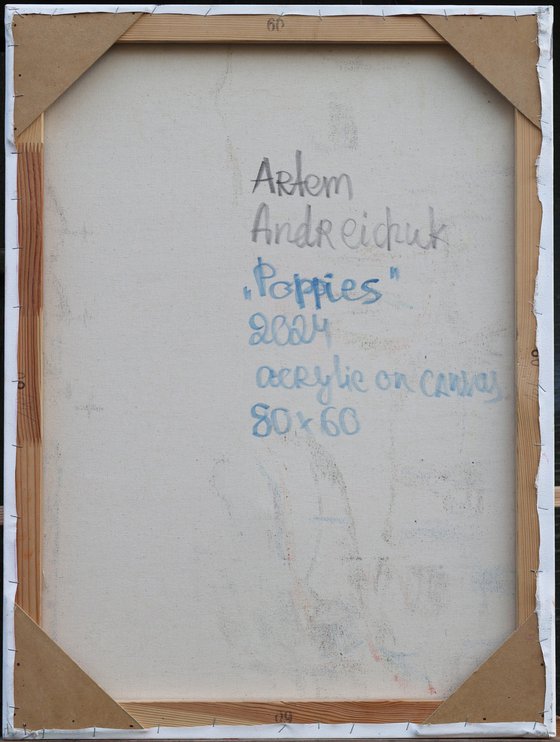 60
Artem
Andreichuk
„Poppies"
2024
acrylic on canvas
80x60
60